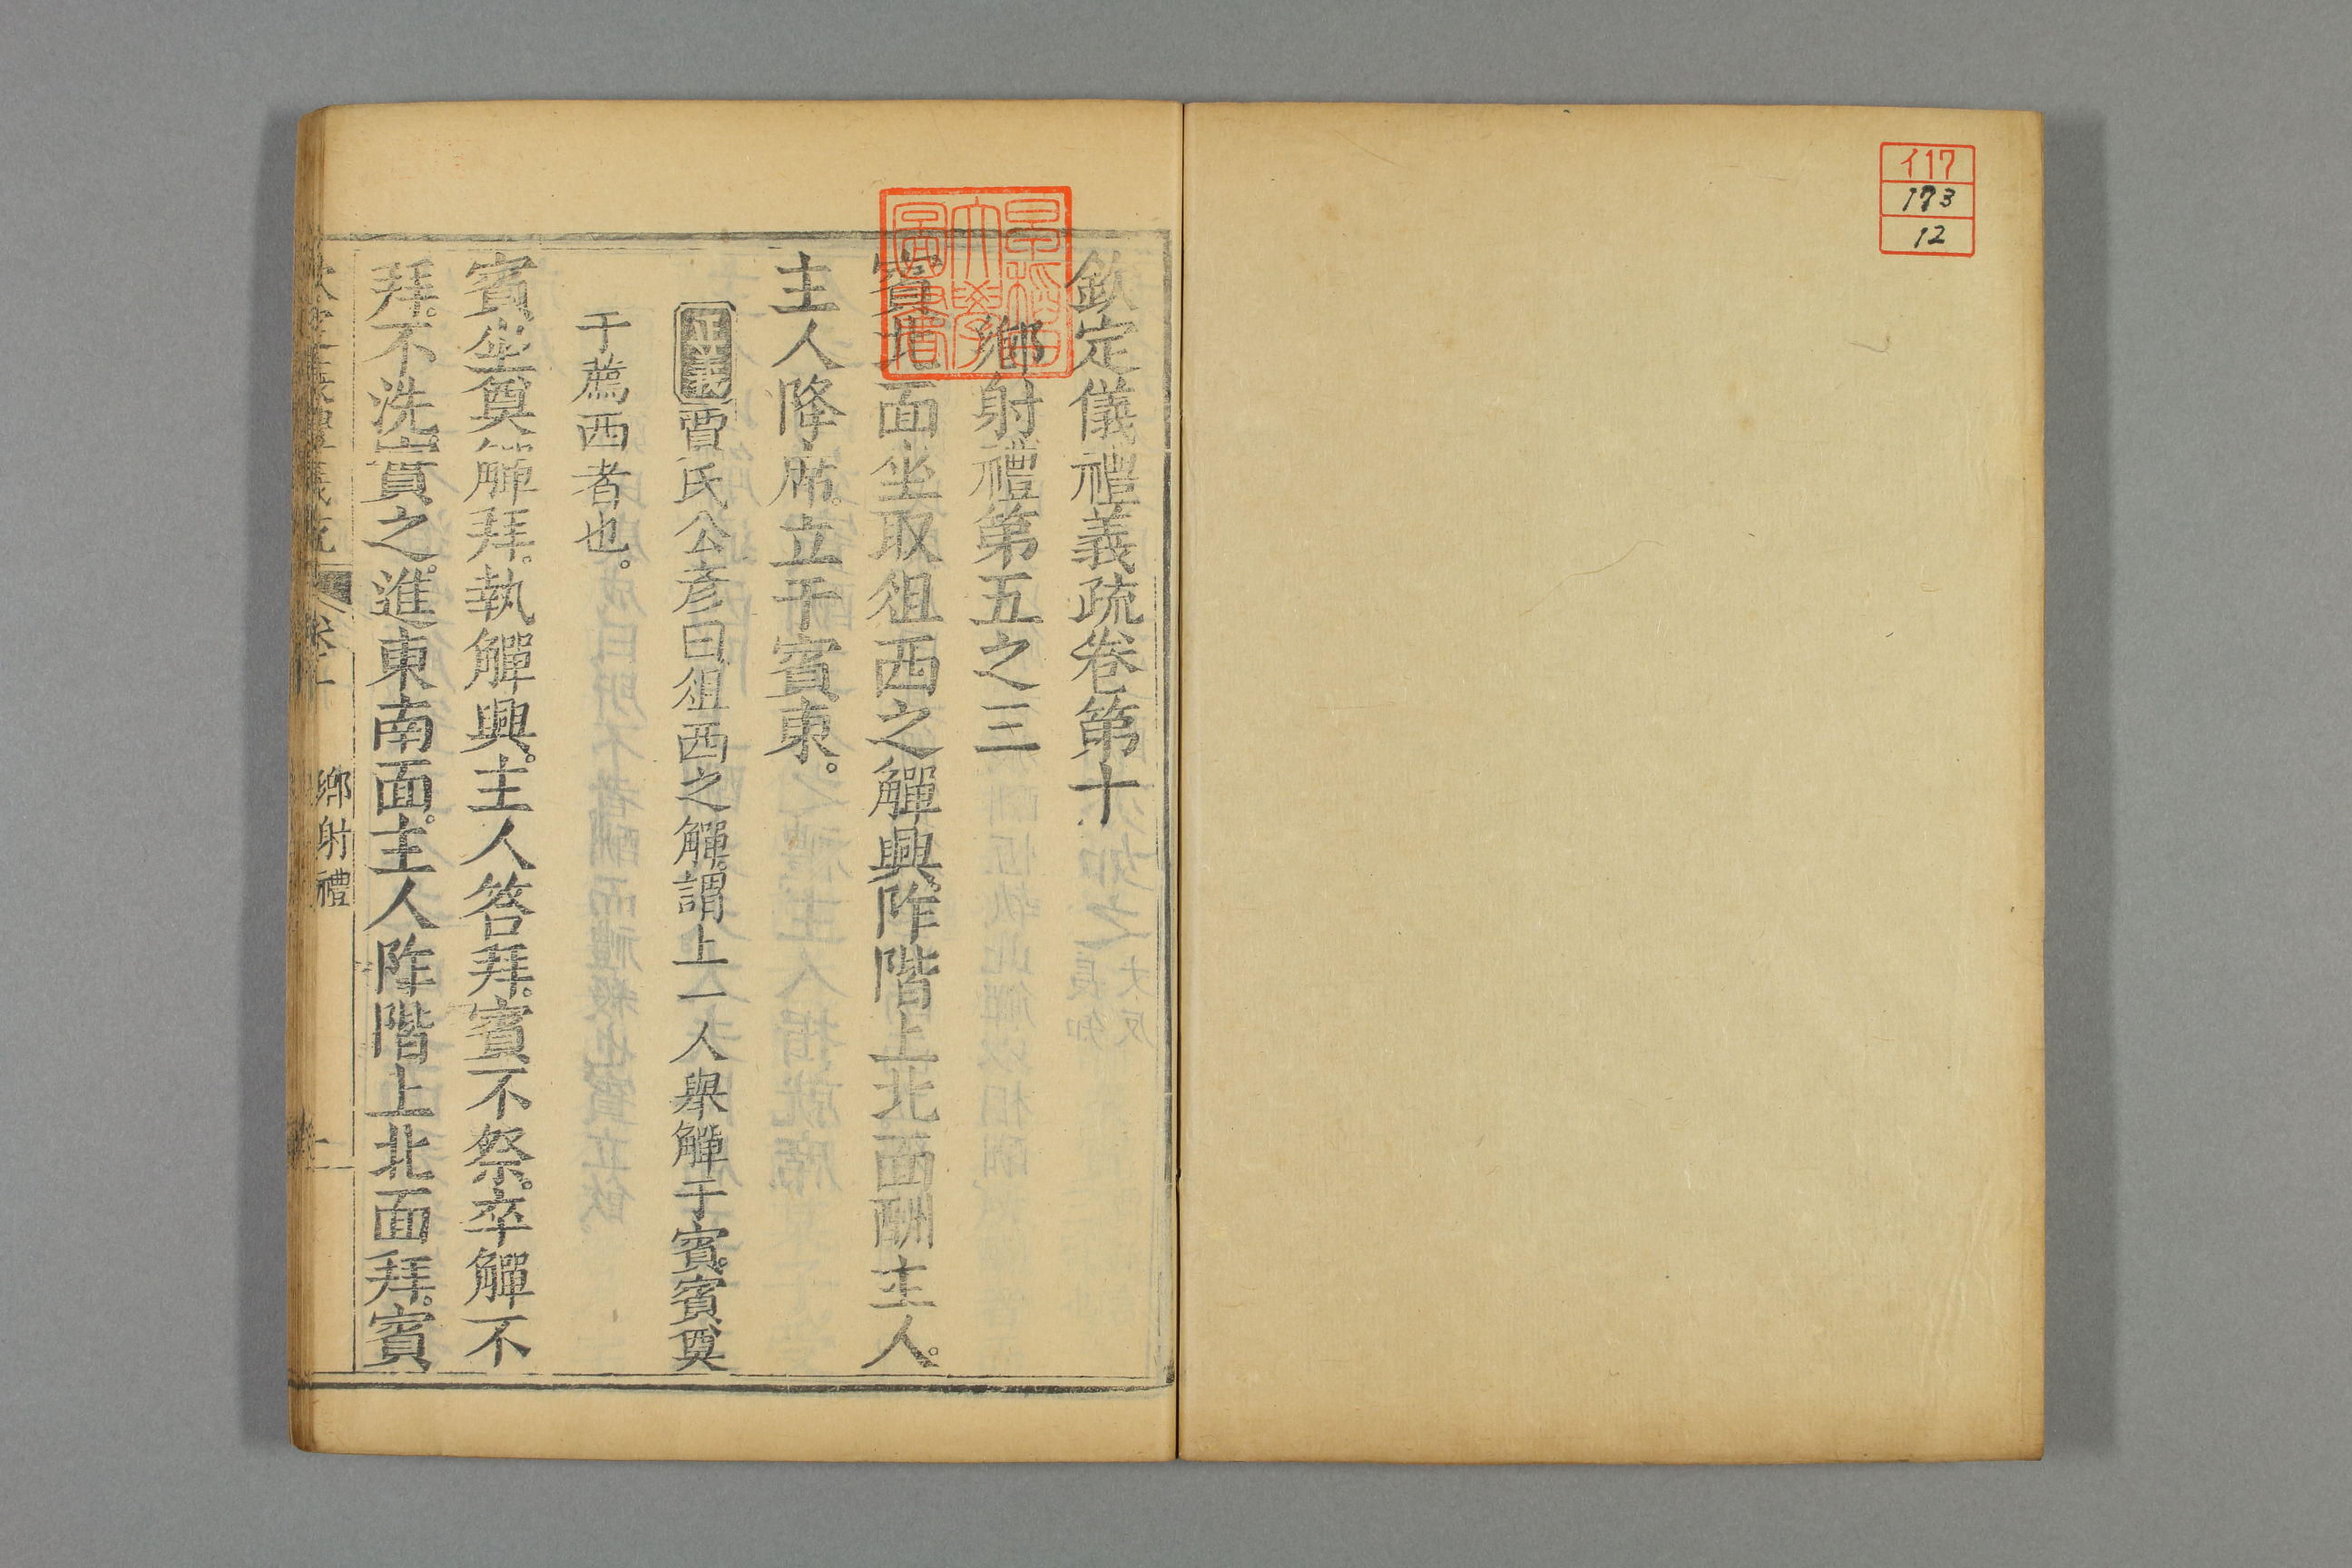 イ17
173
12
早稲田大學圖書
欽定儀禮義疏卷第十
鄉射禮第五之三
賓北面坐取俎西之觶興阼階上北面酬主人。
主人降席。立于賓東。
正義賈氏公彥曰俎西之觶。謂上一人舉觶于賓。賓奠
于薦西者也。
賓坐奠觶拜。執觶興。主人答拜。賓不祭。卒觶不
拜。不洗。實之。進東南面。主人阼階上北面拜。賓
鄉射禮